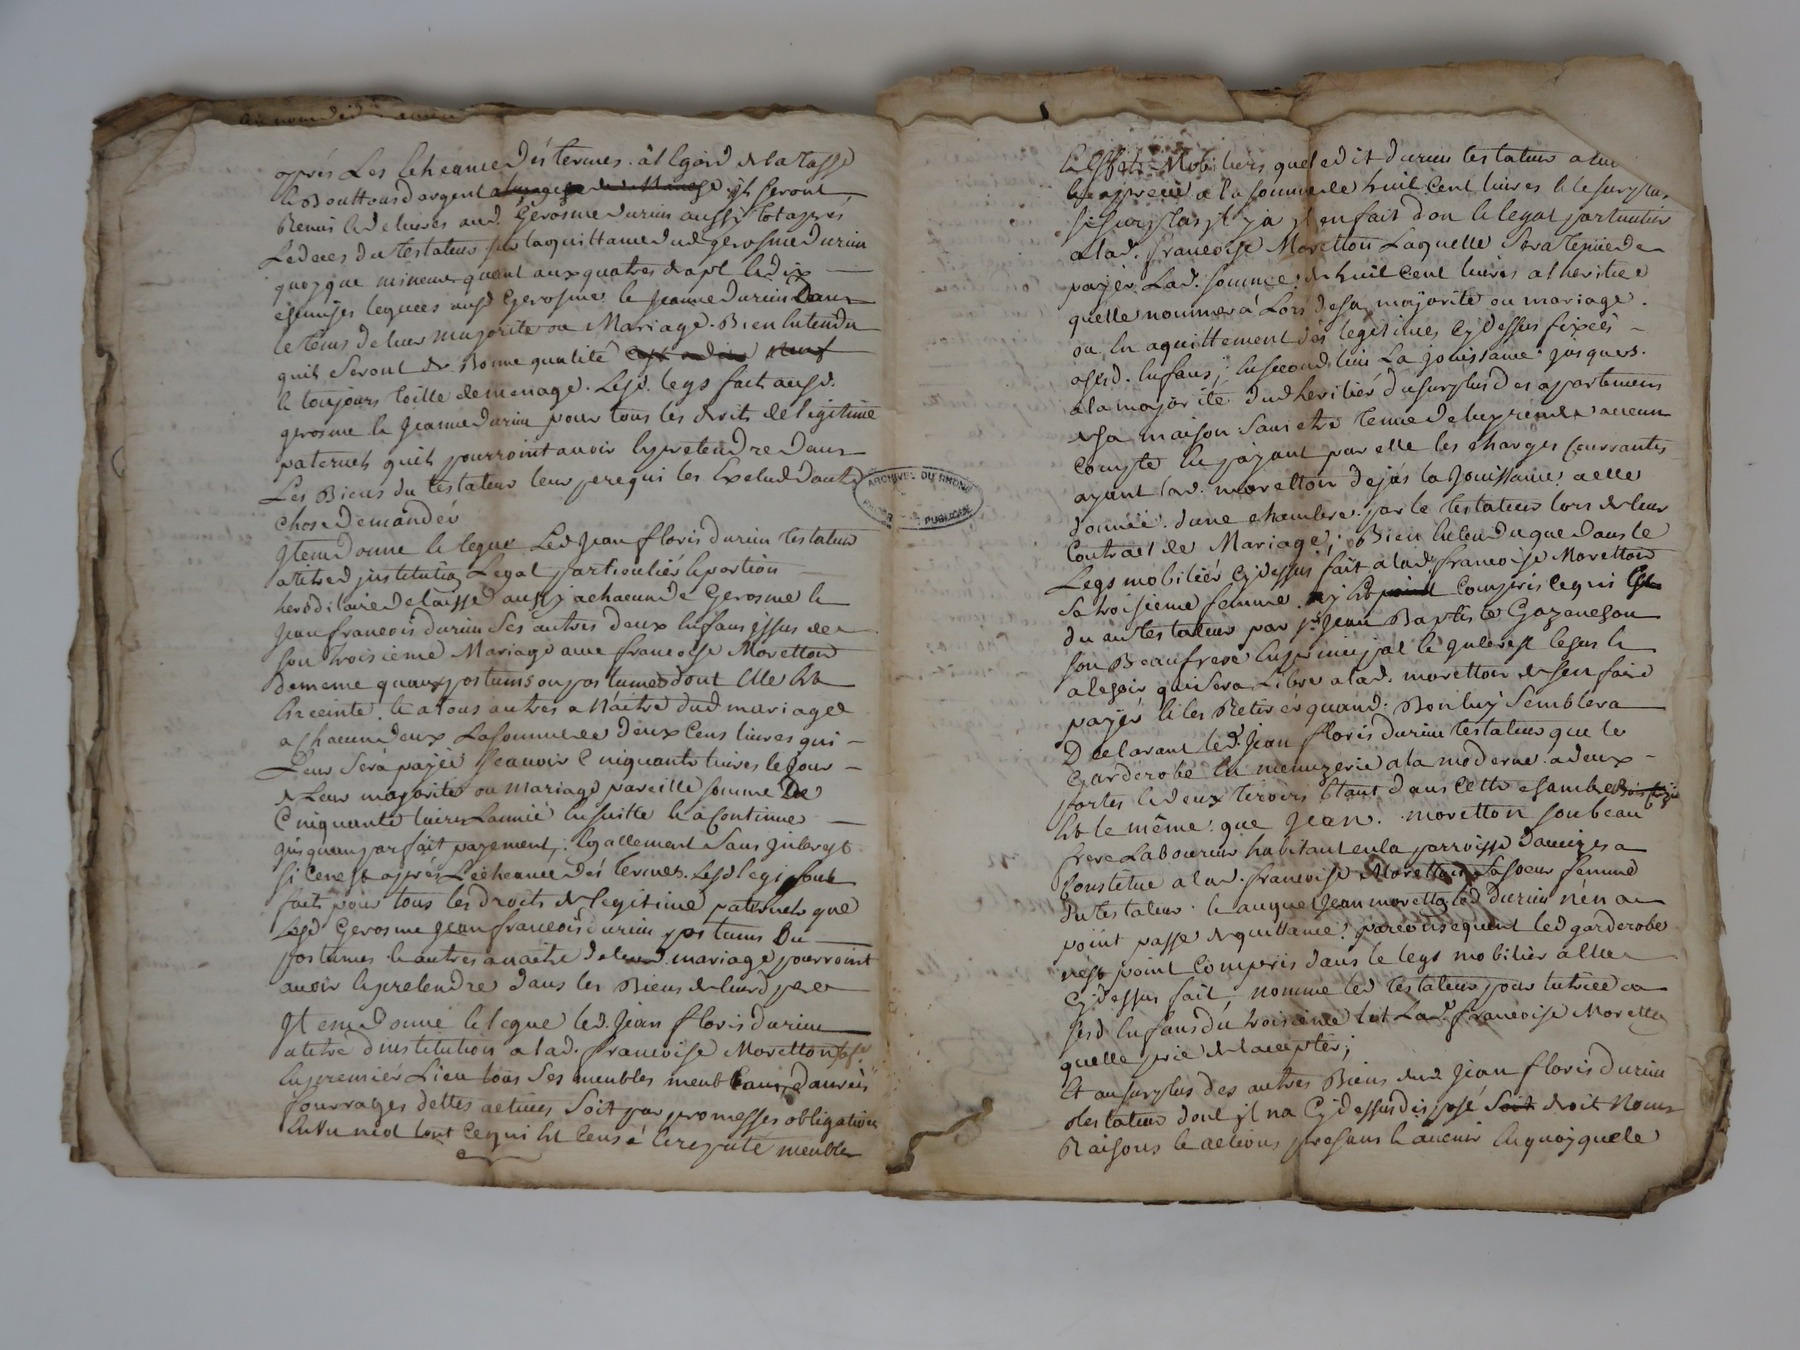 après Les Echeance des termes. a l'Egard de la tasse
et Bouttons d'argent ils seront
Remis et delivrés aud. Gerosme durieu aussy tot après
Le deces du testateur sur la quittance dud gerosme durieu
quoy que mineur, quant aux quatres draps et dix
chemises leguées ausd Gerosme et Jeanne durieu Dans
le tems de leur majorité ou Mariage. Bien Entendu
quils seront de Bonne qualité
et toujours toille de menage. Lesd. legs fait ausd.
gerosme et Jeanne durieu pour tous les droits de legitime
paternels quils pourroint avoir et pretendre Dans
Les Biens du testateur leur pere qui les Exclud d'autre
chose Demander
Item Donne et legue Led Jean floris durieu testateur
a titre d'institution Legat particulier et portion
hereditaire delaisse aussy a chacun de Gerosme et
Jean francois durieu Ses autres deux Enfans issus de
son troisieme Mariage avec francoise Moretton
de meme quaux postums ou postumes dont Elle Est
Enceinte. et a tous autres a Naitre dud mariage
a Chacun deux La somme de deux Cens livres qui
Leur Sera payée Scavoir Cinquante livres le Jour
de Leur majorité ou Mariage pareille somme De
Cinquante livres L'année Ensuitte et a Continuer
jusquau parfait payement, Egallement Sans Interest
si ce nest après L'echeance des termes. Lesd legs sont
faits pour tous les droits de legitime paternels que
Lesd Gerosme Jean francois durieu postums ou
postumes et autres a naitre de leurd. mariage pourroint
avoir et pretendre dans les Biens de leurd pere
Item Donne et legue led. Jean floris durieu
a titre d'institution a lad. francoise Moretton
En premier Lieu tous Ses meubles meublants, danrées
fourrages dettes actives Soit par promesses obligations
En Un mot tout ce qui Est Censé et reputé meubles
ARCHIVES DU RHONE
Et Effets Mobiliers que led it durieu testateur a lui
la somme de huit Cent livres et le surplus
si surplus il y a il en fait don et legat particulier
a lad. francoise Moretton Laquelle Sera tenüe de
payer Lad. somme de huit Cent livres a l'heritier
quelle nommera Lors de sa majorité ou mariage.
ou En aquittement des legitimes Cy dessus fixées
auxd. Enfans, En second lieu La jouissance jusques.
a la majorité dud heritier du surplus des appartemens
de sa maison Sans etre tenue de luy rendre aucun
Compte En payant par elle les charges Courrantes
ayant lad. moretton dejas la Jouissance a elle
donnée d'une chambre par le testateur lors de leur
Contract de Mariage; Bien Entendu que dans le
Legs mobilier Cy dessus fait a lad. francoise Moretton
Sa troisieme femme, y est Compris ce qui Est
du au testateur par Sr Jean Baptiste
son Beaufrere En principal et Interest Cessés et
a Cessoir qui sera Libre a lad. moretton de s'en faire
payer et les Retirer quand Bon luy Semblera
Declarant led. Jean floris durieu testateur que le
Garderobe En menuzerie a la moderne a deux
portes et deux tiroirs Etant dans cette chambre
Est le même que Jean moretton son beau
frere Laboureur habitant en la parroisse
Constitue a lad. francoise Moretton Sa soeur femme
du testateur et auquel Jean moretton led Durieu n'en a
point passé de quittance, par consequent led garderobe
n'est point Compris dans le legs mobilier a Elle
Cy dessus fait, nomme led testateur pour tutrice a
sesd Enfans du troisieme lit Lad. francoise Moretton
quelle prie de l'accepter;
Et au surplus des autres Biens dud Jean floris durieu
testateur dont il n'a Cy dessus disposé droit Noms
Raisons et actions presens et avenir En quoy que le